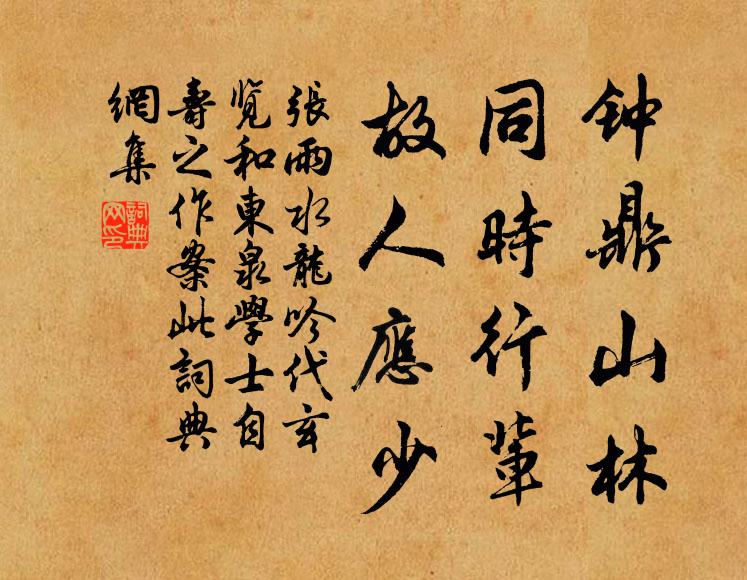 钟鼎山林
同時行輩
故人應少
張雨水龍吟代玄
覽和東泉學士自
壽之作案此詞典
網集
詞典
网印